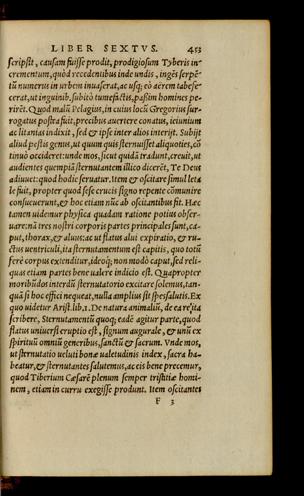 LIBER SEXTVS. 453
scripsit, causam fuisse prodit, prodigiosum Tyberis in-
crementum, quòd recedentibus inde undis, ingẽs serpẽ-
tũ numerus in urbem inuaserat, ac usq; eò aërem tabefe-
cerat, ut inguinib. subitò tumefactis, passim homines pe-
rirẽt. Quod malũ Pelagius, in cuius locũ Gregorius sur-
rogatus postra fuit, precibus auertere conatus, ieiunium
ac litanias indixit, sed & ipse inter alios interijt. Subijt
aliud pestis genus, ut quum quis sternuisset aliquoties, cõ
tinuò occideret: unde mos, sicut quidã tradunt, creuit, ut
audientes quempiã sternutantem illico dicerẽt, Te Deus
adiuuet: quod hodie seruatur. Item & oscitare simul leta
le fuit, propter quod sese crucis signo repente cõmunire
consueuerunt, & hoc etiam nũc ab oscitantibus fit. Hæc
tamen uidemur physica quadam ratione potius obser-
uare: nã tres nostri corporis partes principales sunt, ca-
put, thorax, & aluus: ac ut flatus alui expiratio, & ru-
ctus uentriculi, ita sternutamentum est capitis, quo totũ
ferè corpus extenditur, ideoq; non modò caput, sed reli-
quas etiam partes bene ualere indicio est. Quapropter
moribũdos interdũ sternutatorio excitare solemus, tan-
quã si hoc effici nequeat, nulla amplius sit spes salutis. Ex
quo uidetur Arist. lib. 1. De natura animaliũ, de ea re ita
scribere, Sternutamentũ quoq; eadẽ agitur parte, quod
flatus uniuersi eruptio est, signum augurale, & unũ ex
spirituũ omniũ generibus, sanctũ & sacrum. Vnde mos,
ut sternutatio ueluti bonæ ualetudinis index, sacra ha-
beatur, & sternutantes salutemus, ac eis bene precemur,
quod Tiberium Cæsarẽ plenum semper tristitiæ homi-
nem, etiam in curru exegisse produnt. Item oscitantes
F 3